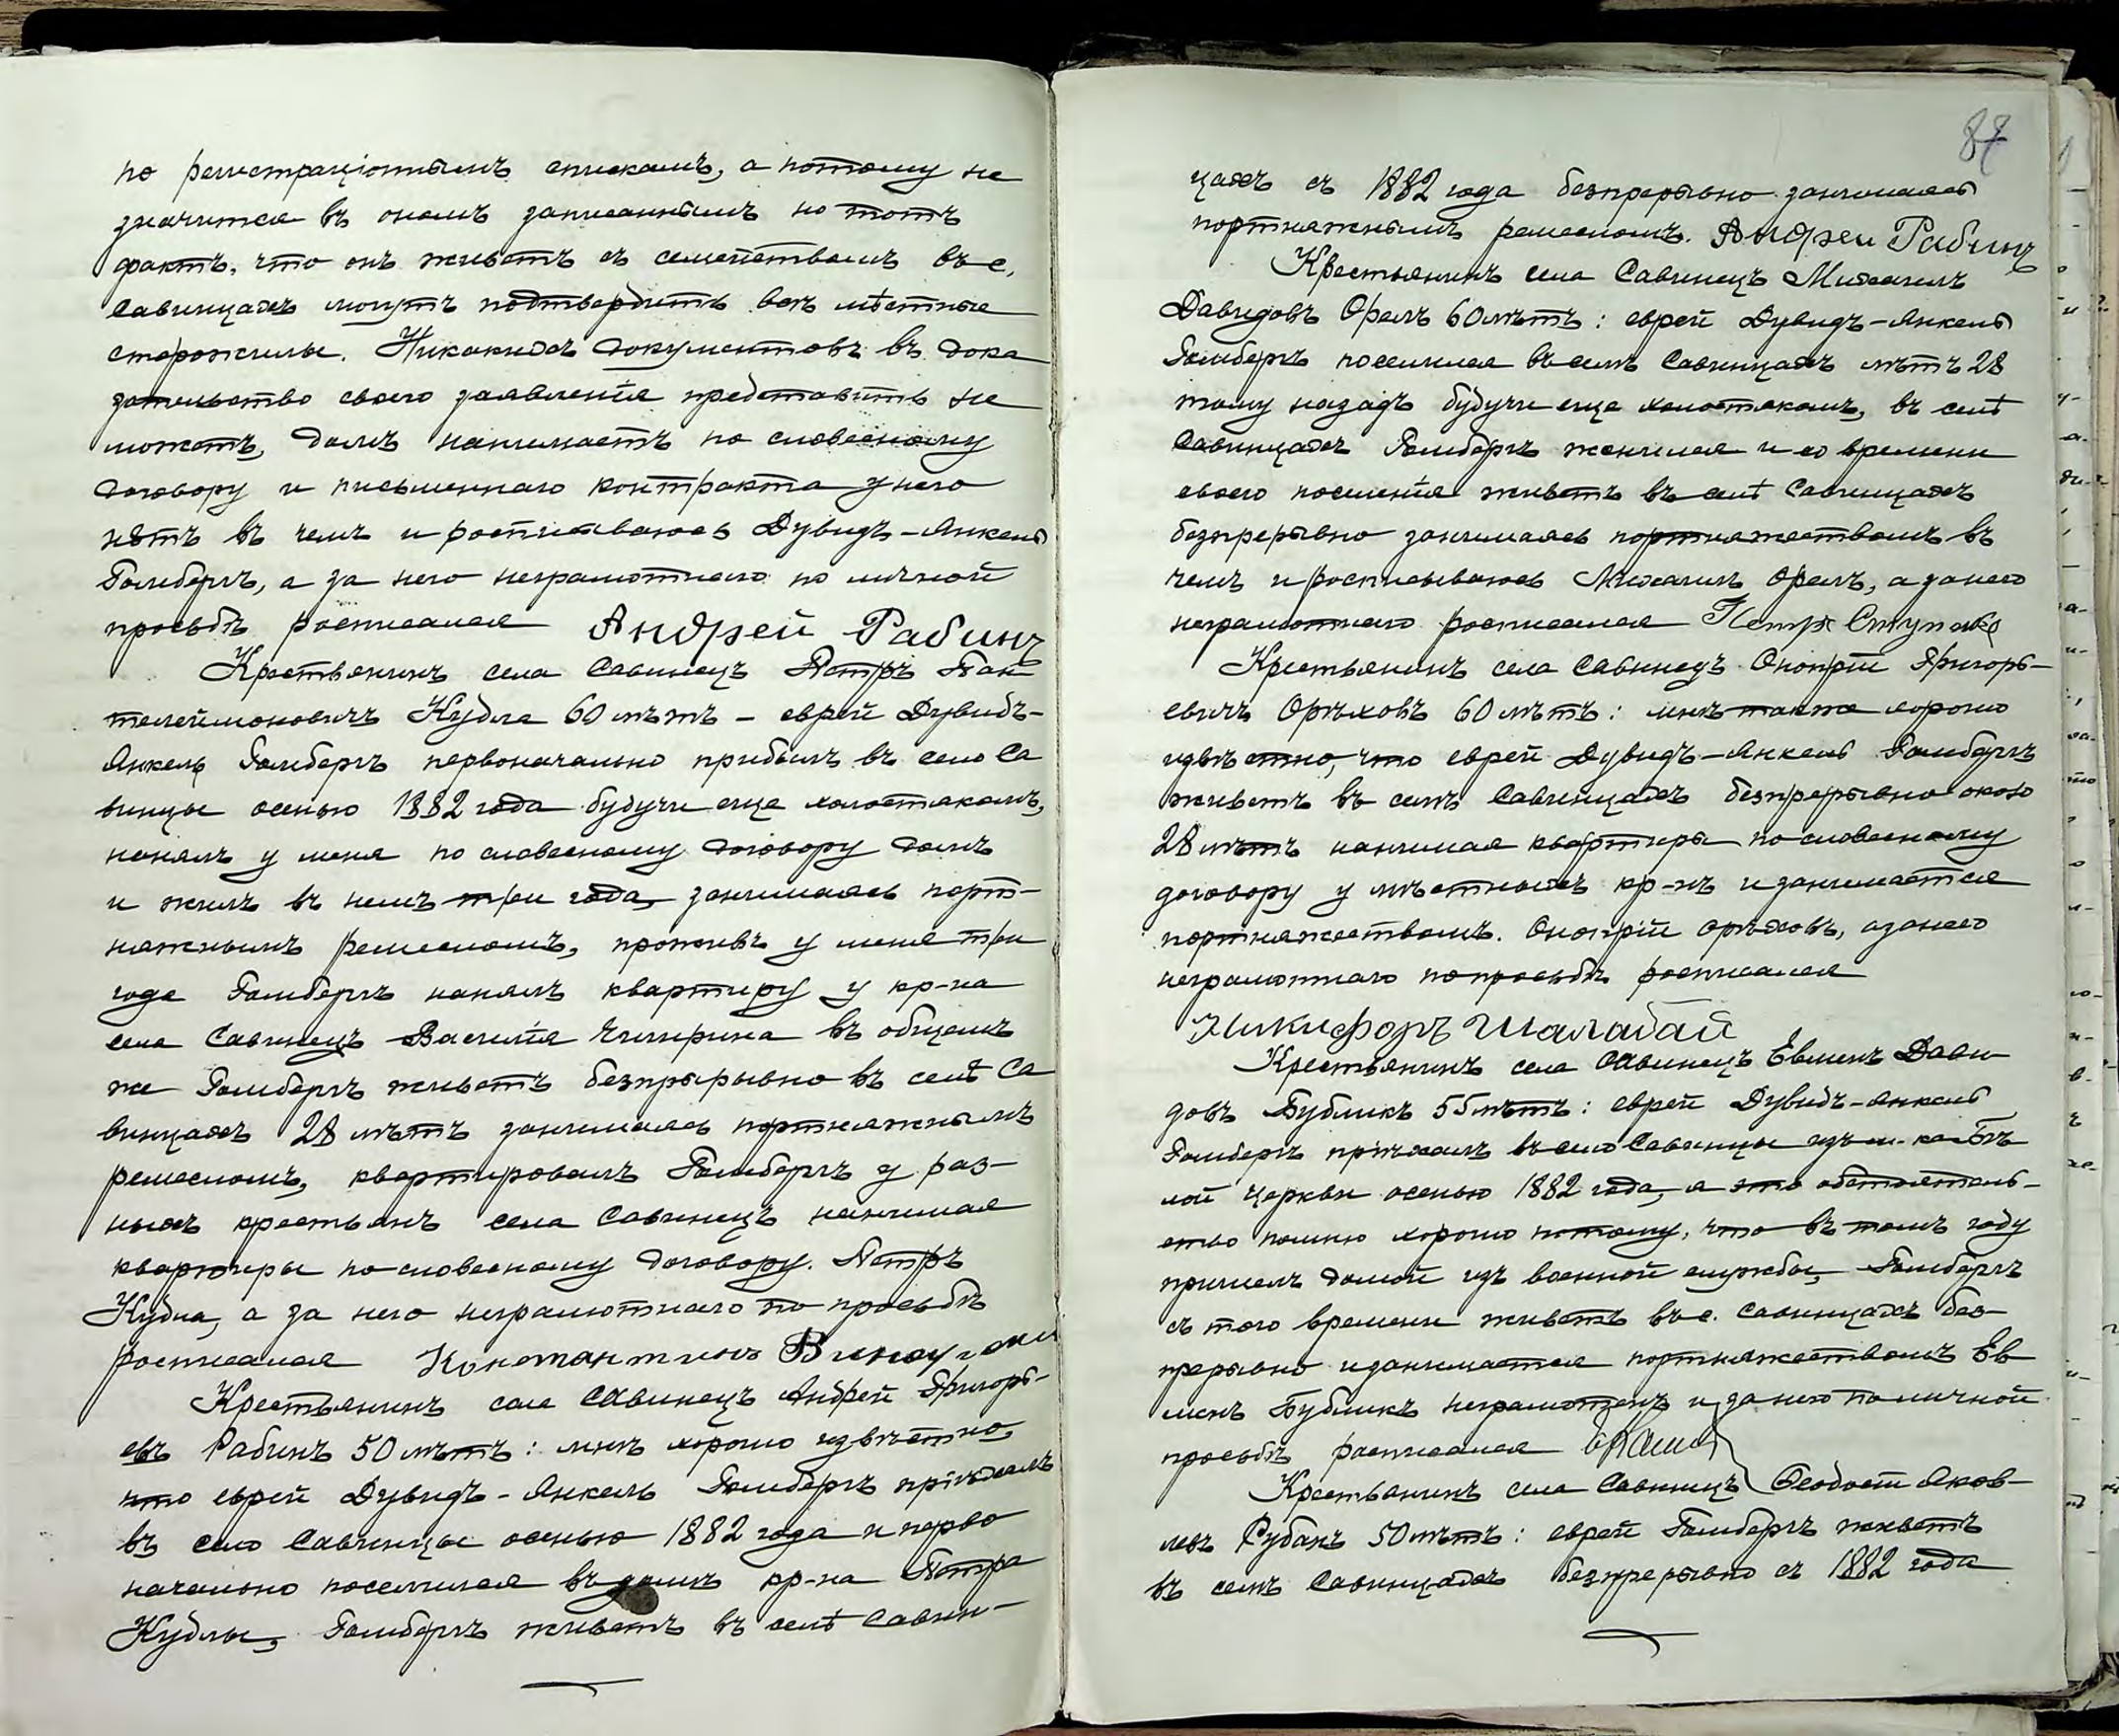 по регистраціоннымъ спискамъ, а потому не
значится въ ономъ записаннымъ но тотъ
фактъ, что онъ живетъ съ семействомъ въ с.
Савинцахъ могутъ подтвердить всѣ мѣстные
старожилы. Никакихъ документовъ въ дока
зательство своего заявленія представить не
можетъ, домъ нанимаетъ по словесному
договору и письменнаго контракта у него
нѣтъ въ чемъ и росписываюсь Дувидъ-Янкель
Гамбергъ, а за него неграмотнаго по личной
просьбѣ росписался Андрей Рабинъ
Крестьянинъ села Савинецъ Петръ Пан
телеймоновичъ Кудла 60 лѣтъ - еврей Дувидъ-
Янкель Гамбергъ первоначально прибылъ въ село Са
винцы осенью 1882 года будучи еще холостякомъ,
нанялъ у меня по словесному договору домъ
и жилъ въ немъ три года, занимаясь порт-
няжнымъ ремесломъ, проживъ у меня три
года Гамбергъ нанялъ квартиру у кр-на
села Савинецъ Василія Чигирина въ общемъ
же Гамбергъ живетъ безпрерывно въ селѣ Са
винцахъ 28 лѣтъ занимаясь портняжнымъ
ремесломъ, квартировалъ Гамбергъ у раз-
ныхъ крестьянъ села Савинецъ нанимая
квартиры по словесному договору. Петръ
Кудла, а за него неграмотнаго по просьбѣ
росписался Константинъ
Крестьянинъ села Савинецъ Андрей Григорь-
евъ Рабинъ 50 лѣтъ: мнѣ хорошо извѣстно,
что еврей Дувидъ-Янкель Гамбергъ пріѣхалъ
въ село Савинцы осенью 1882 года и перво
начально поселился въ домѣ кр-на Петра
Кудлы, Гамбергъ живетъ въ селѣ Савин-
87
цахъ съ 1882 года безпрерывно занимаясь
портняжнымъ ремесломъ. Андрей Рабинъ
Крестьянинъ села Савинецъ Михаилъ
Давидовъ Орелъ 60 лѣтъ: еврей Дувидъ-Янкель
Гамбергъ поселился въ селѣ Савинцахъ лѣтъ 28
тому назадъ будучи еще холостякомъ, въ селѣ
Савинцахъ Гамбергъ женился и со времени
своего поселенія живетъ въ селѣ Савинцахъ
безпрерывно занимаясь портняжествомъ въ
чемъ и росписываюсь Михаилъ Орелъ, а за него
неграмотнаго росписался Петръ Ступакъ
Крестьянинъ села Савинецъ Оноприй Григорь-
евичъ Орѣховъ 60 лѣтъ: мнѣ также хорошо
извѣстно, что еврей Дувидъ-Янкель Гамбергъ
живетъ въ селѣ Савинцахъ безпрерывно около
28 лѣтъ нанимая квартиры по словесному
договору у мѣстныхъ кр-нъ и занимается
портняжествомъ. Оноприй Орѣховъ, а за него
неграмотнаго по просьбѣ росписался
Никифоръ Шалабай
Крестьянинъ села Савинецъ Евменъ Дави
довъ Бубликъ 55 лѣтъ: еврей Дувидъ-Янкель
Гамбергъ пріѣхалъ въ село Савинцы изъ м-ка Бѣ
лой Церкви осенью 1882 года, я это обстоятель-
ство помню хорошо потому, что въ томъ году
пришелъ домой изъ военной службы, Гамбергъ
съ того времени живетъ въ с. Савинцахъ без-
прерывно и занимается портняжествомъ Ев
менъ Бубликъ неграмотенъ и за него по личной
просьбѣ росписался
Крестьянинъ села Савинецъ Феодосій Яков-
левъ Рубанъ 50 лѣтъ: еврей Гамбергъ живетъ
въ селѣ Савинцахъ безпрерывно съ 1882 года